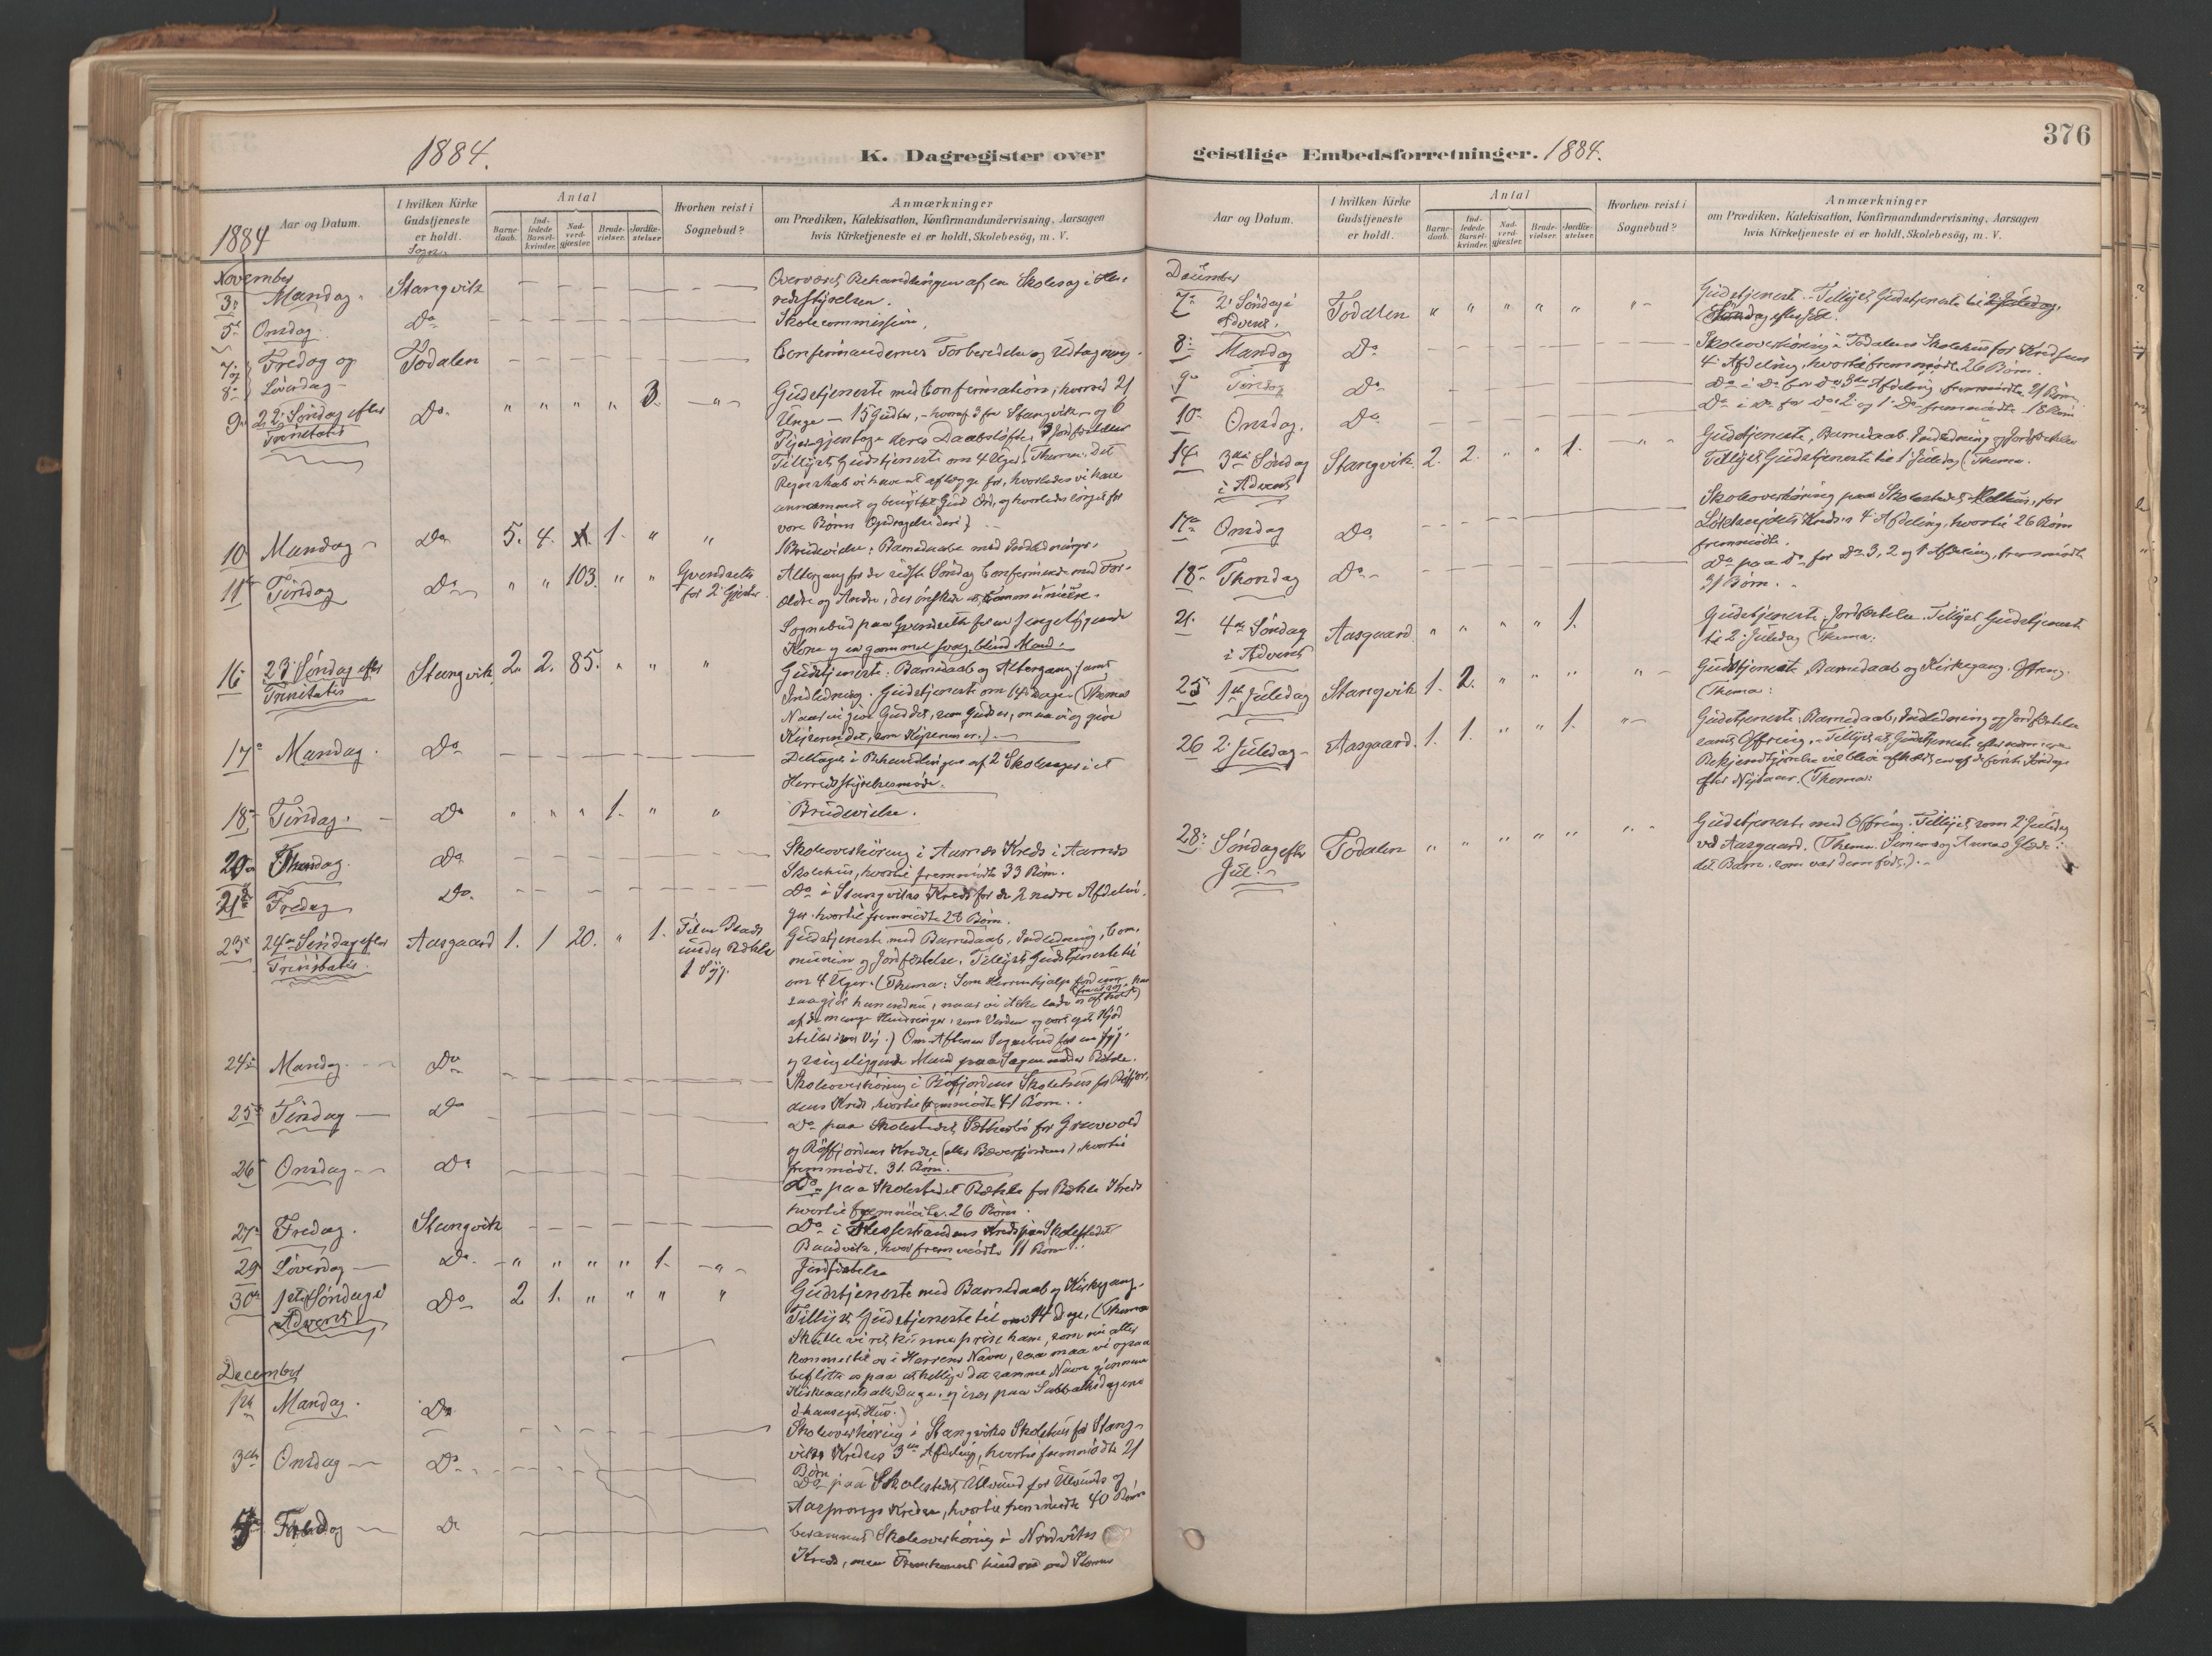 1884.
K. Dagregister over
1884
Aar og Datum.
I hvilken Kirke
Gudstjeneste
er holdt.
Sogn
Antal
Barne-
daab.
Ind-
ledede
Barsel-
kvinder.
Nad-
verd-
gjæster.
Brude-
vielser.
Jordfæ-
stelser.
Hvorhen reist i
Sognebud?
Anmærkninger
om Prædiken, Katekisation, Konfirmandundervisning, Aarsagen
hvis Kirketjeneste ei er holdt, Skolebesøg, m. V.
November
3. Mandag. Stangvik Overværet Behandlingen af en Skolesag i Her-
redsstyrelsen.
5. Onsdag Do Skolecommission.
7 og Fredag og Todalen Confirmandernes Forberedelse og Udtagning.
8. Löverdag
9. 22. Söndag efter Trinitatis Do " " " " 3. " Gudstjeneste med Confirmation, hvorved 21
Unge - 15 Gutter, - hvoraf 3 fra Stangvik - og 6
Piger gjentage deres Daabslöfte. 3 Jordfæstelser
Tillyst Gudstjeneste om 4 Uger (Thema: Det
Regnskab vi have at aflægge for, hvorledes vi have
annammet og benyttet Guds Ord, og hvorledes sörget for
vore Börns Opdragelse deri)
10 Mandag Do 5. 4. 1. " " 1 Brudevielse, Barnedaabe med Indledninger.
11 Tirsdag Do " " 103. " " Gvendset for 2 Gjester Altergang for de sidste Söndag Confirmerede med For-
ældre og Andre, der önskede at kommunicere.
Sognebud paa for en sengeliggende
Kone og en gammel svag blind Mand.
16 23. Söndag efter Trinitatis Stangvik 2. 2. 85. " " " Gudstjeneste. Barnedaab og Altergang samt
Indledning. Gudstjeneste om 14 dage (Thema
Naar vi give Gud det, som Guds er, maa vi og give
Kejseren det, som Kejserens er.)
17 Mandag. Do Deltaget i Behandlingen af 2 Skolesager i et
Herredsstyrelsesmöde.
18 Tirsdag. Do " " " 1. " " Brudevielse.
20 Thorsdag. Do Skoleoverhöring i Aarnes Kreds i Aarnes
Skolehus, hvortil fremmödte 33 Börn.
21 Fredag Do. Do i Stangviks Kreds for de 2 nedre Afdelin-
ger hvortil fremmödte 28 Börn.
23 24de Söndag efter Trinitatis. Aasgaard 1. 1 20. " 1. Til en Plads under Bække 1 Syg. Gudstjeneste med Barnedaab, Indledning, Com-
munion og Jordfæstelse. Tillyst Gudstjeneste til
om 4 Uger. (Thema: Som Herren hjalp fordum,
saa gjör han endnu, naar vi ikke lade os afholde
af de mange Hindringer, som Verden og vort eget Kjöd
stiller i vor Vej.) Om Aftenen Sognebud for en syg
og sengeliggende Mand paa under Bække.
24 Mandag Do Skoleoverhöring i Böfjordens Skolehus for Böfjor-
dens Kreds, hvortil fremmödte 41 Börn.
25 Tirsdag Do Do paa Skolestedet Sæterbö for Grønvold
og Böfjordens Kredse (alles Bæverfjordens), hvortil
fremmödt. 31. Börn.
26 Onsdag Do Do paa Skolestedet Bække for Bække Kreds
hvortil fremmödte 26 Börn.
27 Fredag. Stangvik Do i Kreds paa Skolestedet
Baadvik, hvor fremmödte 11 Börn.
29 Löverdag Do. " " " " 1. " Jordfæstelse
30 1ste Söndag i Advent Do 2 1. " " " " Gudstjeneste med Barnedaab og Kirkegang.
Tillyst Gudstjeneste til om 14 dage, (Thema
Skulle vi ret kunne prise ham, som nu atter
kommer til os i Herrens Navn, saa maa vi ogsaa
beflitte os paa at hellige det samme Navn gjennem
Kirkeaarets alle Dage, og især paa Sabbathsdagene
i hans eget Hus.)
December
1ste Mandag. Do Skoleoverhöring i Stangviks Skolehus for Stang-
viks Kredses 3die Afdeling, hvortil fremmödte 21
Börn
3die Onsdag Do. Do paa Skolestedet Ulvund for Ulvunds og
Kredse, hvortil fremmödte 40 Börn
Do berammet Skoleoverhöring i Nordviks
Kreds, men Fremkomst hindret ved Storm
geistlige Embedsforretninger. 1884.
376
Aar og Datum.
I hvilken Kirke
Gudstjeneste
er holdt.
Antal
Barne-
daab.
Ind-
ledede
Barsel-
kvinder.
Nad-
verd-
gjæster.
Brude-
vielser.
Jordfæ-
stelser.
Hvorhen reist i
Sognebud?
Anmærkninger
om Prædiken, Katekisation, Konfirmandundervisning, Aarsagen
hvis Kirketjeneste ei er holdt, Skolebesøg, m. V.
December
7 2. Söndag i Advent. Todalen " " " " " " Gudstjeneste. Tillyst Gudstjeneste til 2. Juledag,
Söndag efter Jul.
8. Mandag Do Skoleoverhöring i Todalens Skolehus for Kredsens
4. Afdeling, hvortil fremmödte 26 Börn.
9 Tirsdag Do Do i Do for Do 3die Afdeling fremmödte 21 Börn
10. Onsdag. Do Do i Do for Do 2 og 1. Do fremmödte 18 Börn
14 3die Söndag i Advent Stangvik 2. 2. " " 1. " Gudstjeneste, Barnedaab. Indledning og Jordfæstelse
Tillyst Gudstjeneste til 1. Juledag (Thema.
17 Onsdag Do Skoleoverhöring paa Skolestedet Melhus, for
Kredses 4. Afdeling, hvortil 26 Börn
fremmödte.
18 Thorsdag Do Do paa Do for Do 3, 2 og 1 Afdeling, fremmödte
31 Börn.
21. 4de Söndag i Advent Aasgaard. " " " " 1. Gudstjeneste. Jordfæstelse. Tillyst Gudstjeneste
til 2. Juledag (Thema.
25 1ste Juledag Stangvik 1. 2. " " " " Gudstjeneste, Barnedaab og Kirkegang. Offring.
(Thema:
26 2. Juledag Aasgaard. 1. 1. " " 1. " Gudstjeneste. Barnedaab, Indledning og Jordfæstelse
samt Offring. Tillyst, at Gudstjeneste efter nærmere
Bekjendtgjörelse vil blive afholdt en af de förste Söndage
efter Nytaar. (Thema:
28. Söndag efter Jul. Todalen " " " " " " Gudstjeneste med Offring. Tillyst som 2. Juledag
ved Aasgaard. (Thema. Simeons og Annas Glæde:
det Barn, som var dem födt.)